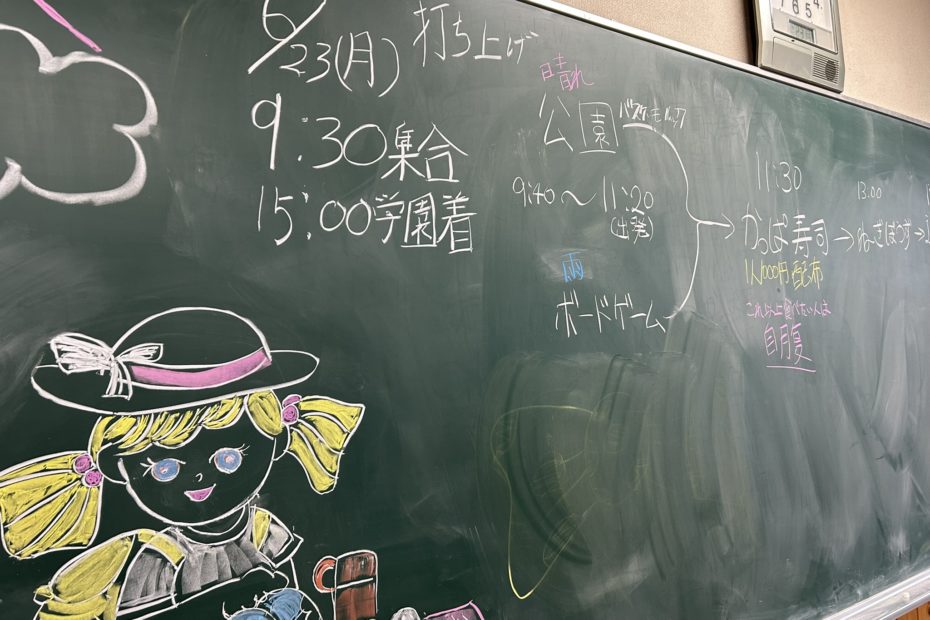 6/23(月) 打ち上げ
9:30集合
15:00学園着
晴れ
公園
9:40〜11:20
(出発)
雨
ボードゲーム
11:30
かっぱ寿司→
1人1000円配布
これ以上食べたい人は
自腹
13:00
→
765